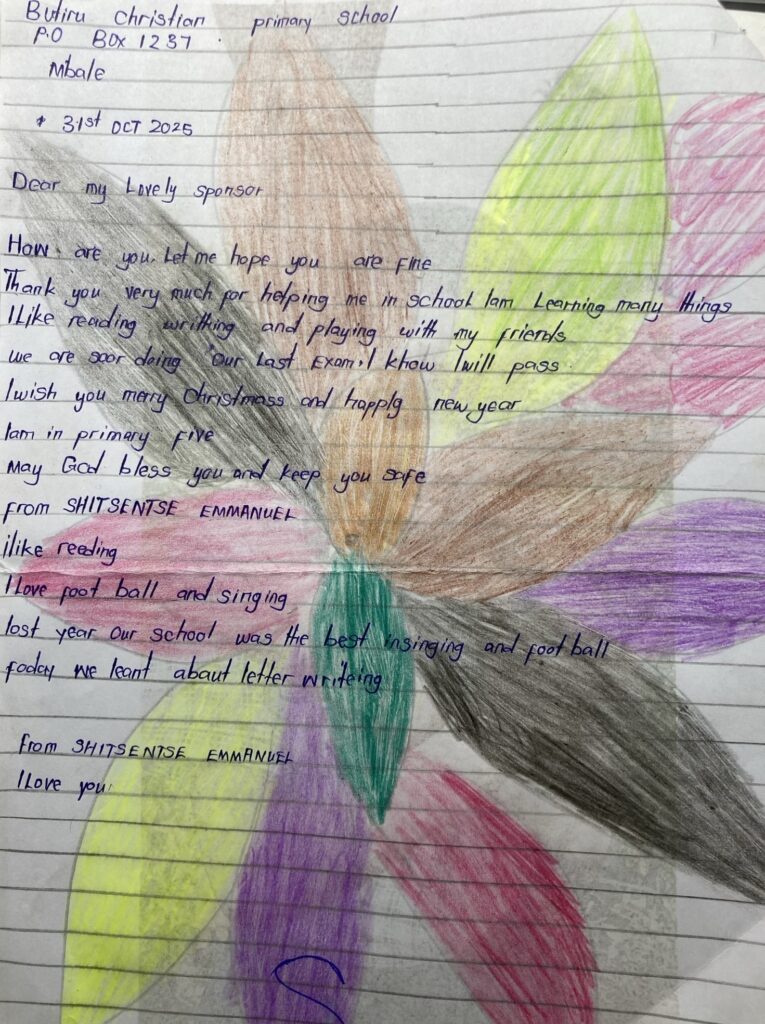 Butiru Christian primary school
P.O BOX 1237
Mbale
31st OCT 2025
Dear my Lovely sponsor
How are you. Let me hope you are fine
Thank you very much for helping me in school Iam Learning many things
I Like reading writhing and playing with my friends
we are soor doing Our Last Exam. I know I will pass.
I wish you merry Christmass and happlg new year
Iam in primary five
May God bless you and keep you safe
from SHITSENTSE EMMANUEL
i like reading
I Love foot ball and singing
lost year our school was the best insinging and foot ball
foday we leant abaut letter writeing
from SHITSENTSE EMMANUEL
I Love you